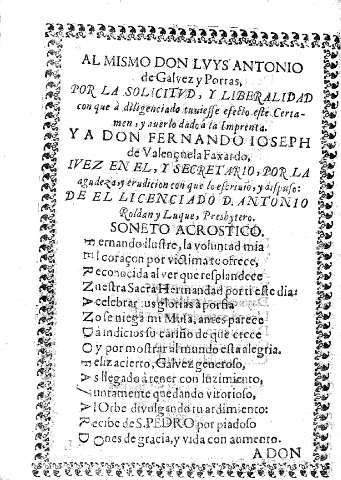 AL MISMO DON LVYS ANTONIO
de Galvez y Porras,
POR LA SOLICITVD, Y LIBERALIDAD
con que à diligenciado tuviesse efecto este Certa-
men, y averlo dado à la Imprenta.
Y A DON FERNANDO IOSEPH
de Valençuela Faxardo,
IVEZ EN EL, Y SECRETARIO, POR LA
agudeza, y erudicion con que lo escrivio, y dispuso:
DE EL LICENCIADO D. ANTONIO
Roldan y Luque, Presbytero.
SONETO ACROSTICO.
Fernando ilustre, la voluntad mia
El coraçon por victima te ofrece,
Reconocida al ver que resplandece
Nuestra Sacra Hermandad por ti este dia:
A celebrar tus glorias à porfia
No se niega mi Musa, antes parece
Da indicios su cariño de que crece
O y por mostrar al mundo esta alegria.
Feliz acierto, Galvez generoso,
As llegado à tener con luzimiento,
Juntamente quedando vitorioso,
Al Orbe divulgando tu ardimiento:
Recibe de S. PEDRO por piadoso
DOnes de gracia, y vida con aumento.
A DON